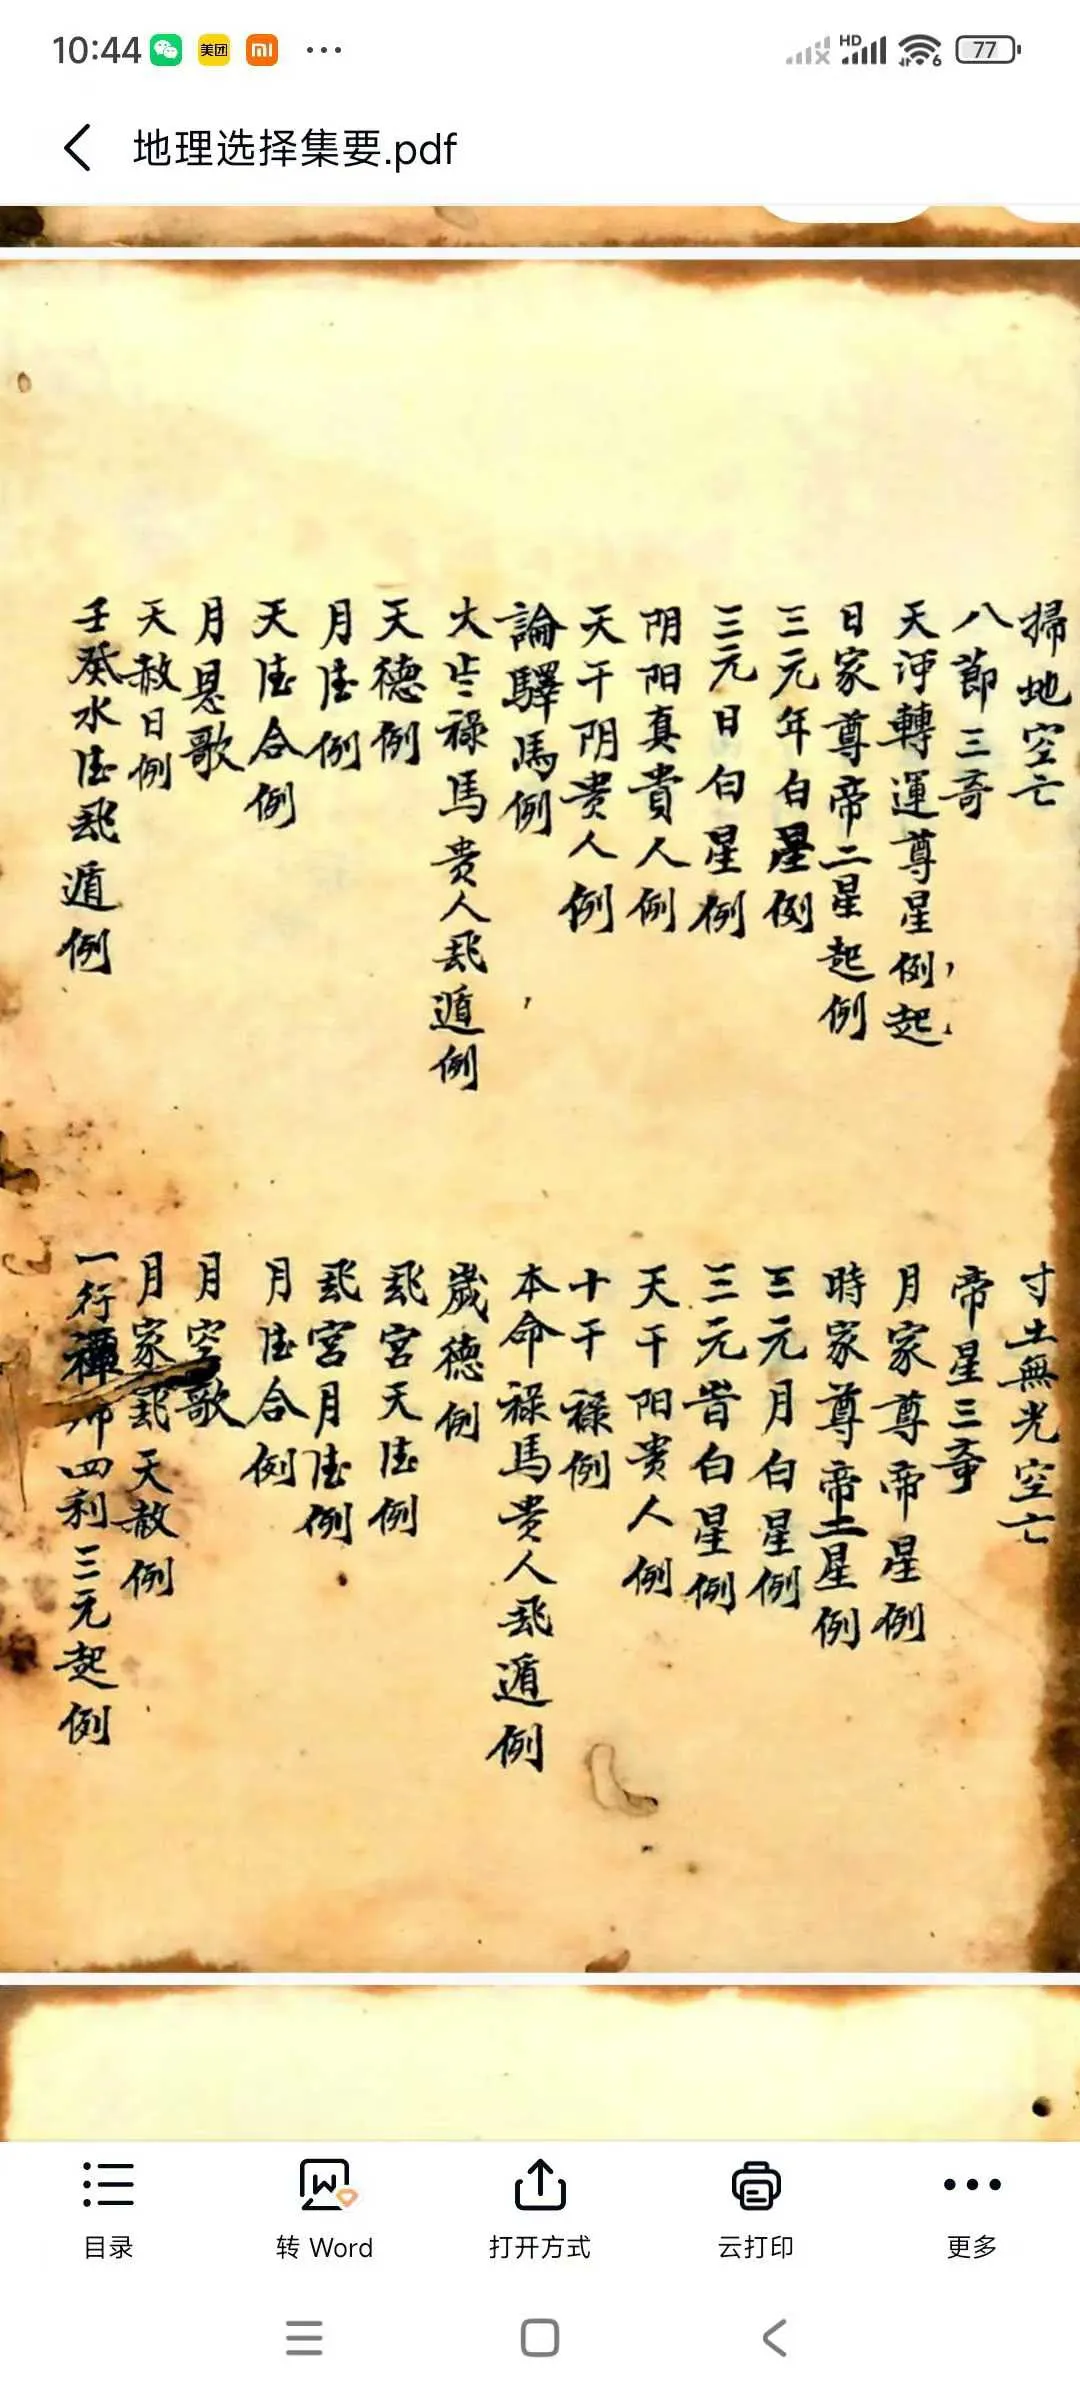 10:44
美团
HD
6
77
地理选择集要.pdf
掃地空亡
八節三奇
天河轉運尊星例起
日家尊帝二星起例
三元年白星例
三元日白星例
阴阳真貴人例
天干阴贵人例
論驛馬例
大岁禄馬贵人飛遁例
天德例
月德例
天德合例
月恩歌
天赦日例
壬癸水德飛遁例
寸土無光空亡
帝星三奇
月家尊帝星例
時家尊帝二星例
三元月白星例
三元旹白星例
天干阳贵人例
十干禄例
本命禄馬贵人飛遁例
歲德例
飛宮天德例
飛宮月德例
月德合例
月空歌
月家飛天赦例
一行禪师四利三元起例
目录
转 Word
打开方式
云打印
更多